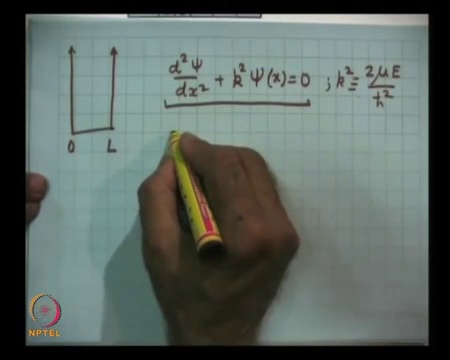 d²Ψ/dx² + k² Ψ(x) = 0 ; k² = 2μE/ħ²
0 L
NPTEL